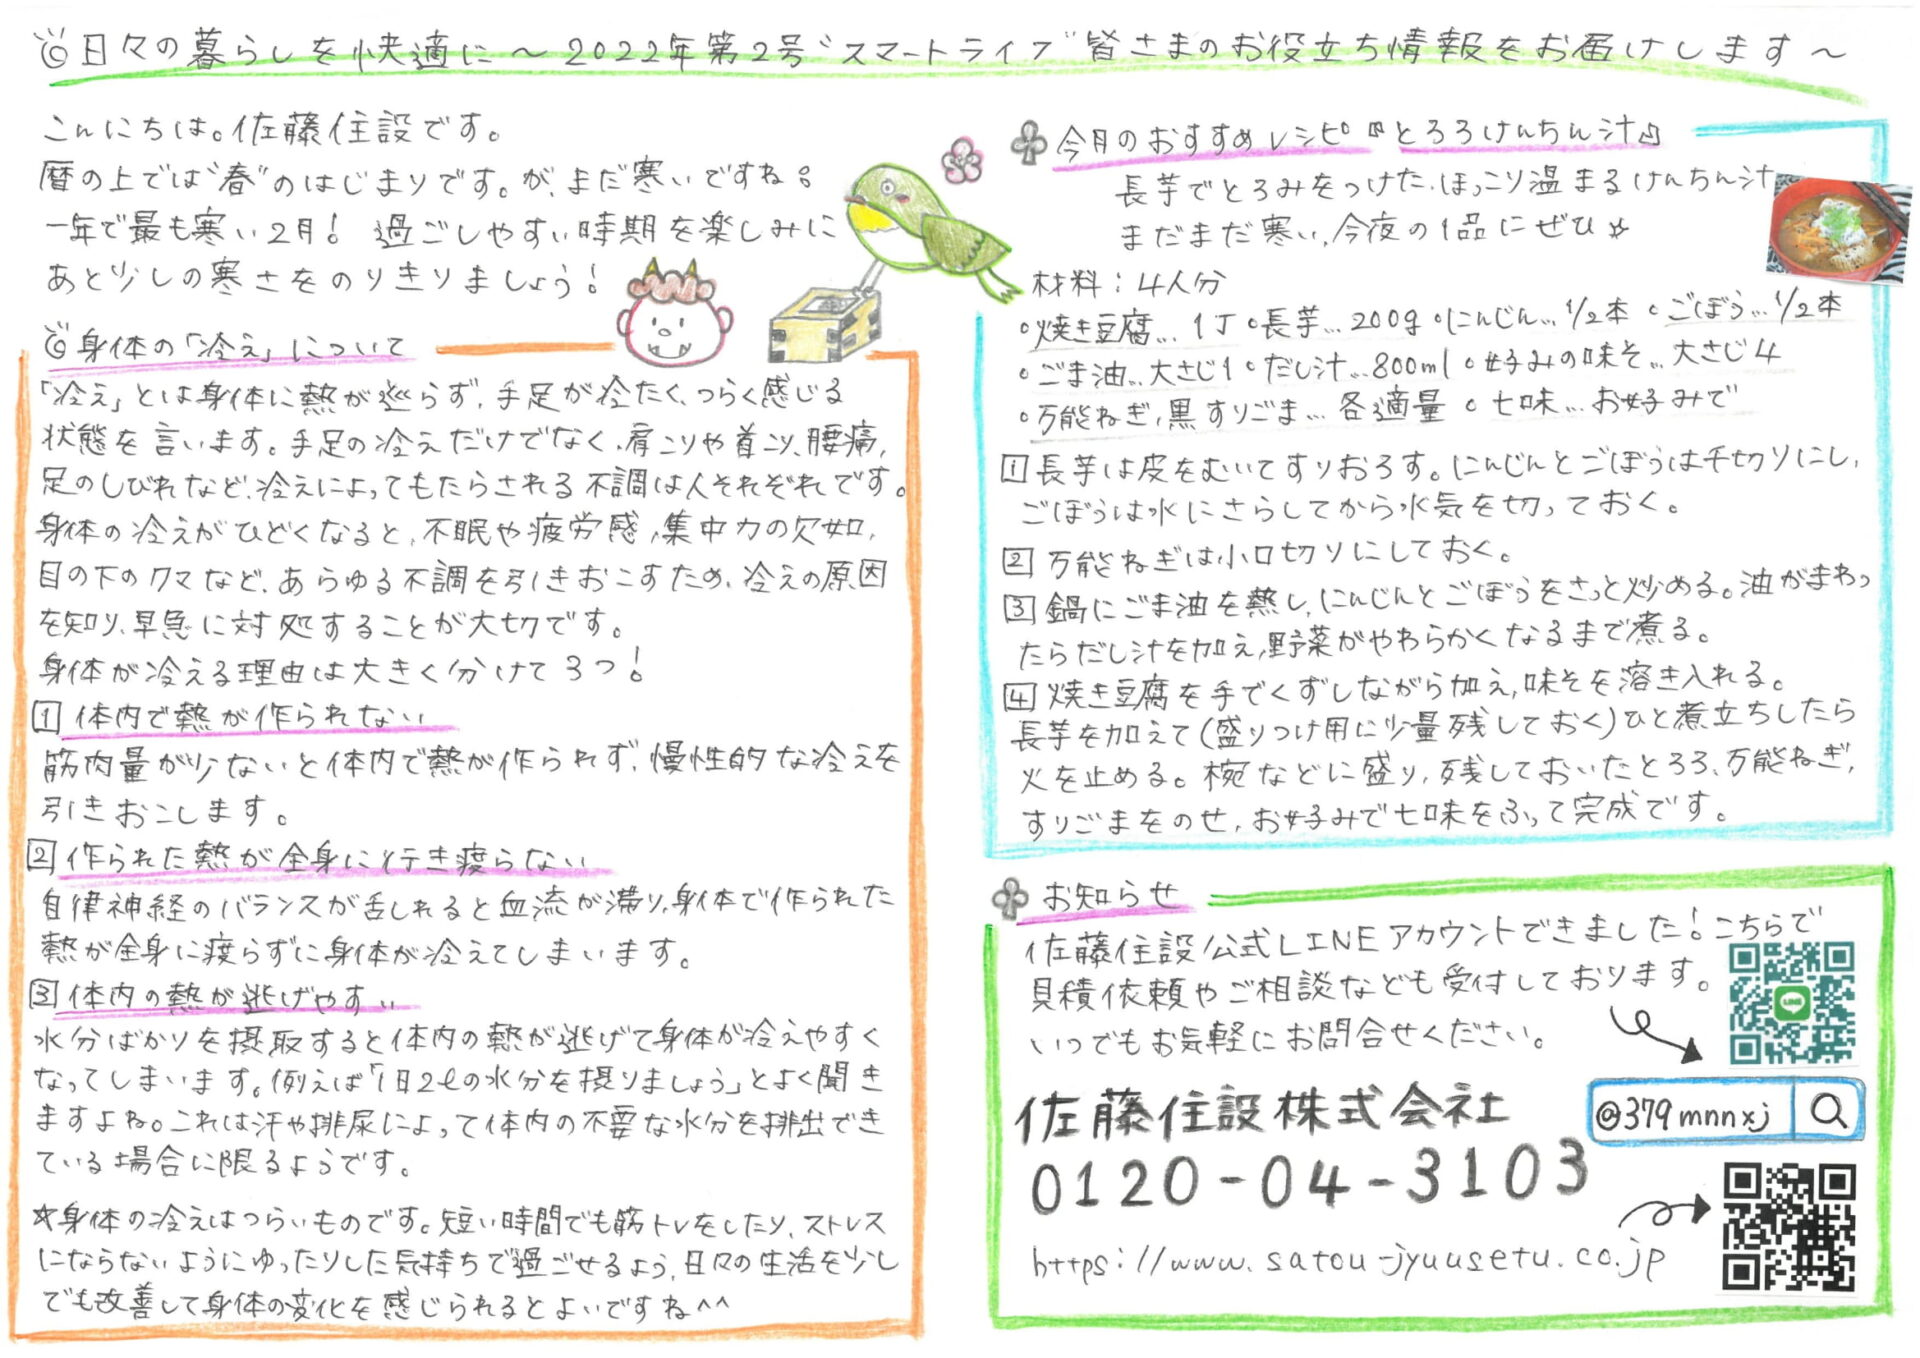 ◎日々の暮らしを快適に～2022年第2号"スマートライフ"皆さまのお役立ち情報をお届けします～
こんにちは。佐藤住設です。
暦の上では"春"のはじまりです。が、まだ寒いですね。
一年で最も寒い2月! 過ごしやすい時期を楽しみに
あと少しの寒さをのりきりましょう!
◎身体の「冷え」について
「冷え」とは身体に熱が巡らず、手足が冷たく、つらく感じる
状態を言います。手足の冷えだけでなく、肩こりや首こり、腰痛、
足のしびれなど、冷えによってもたらされる不調は人それぞれです。
身体の冷えがひどくなると、不眠や疲労感、集中力の欠如、
目の下のクマなど、あらゆる不調を引きおこすため、冷えの原因
を知り、早急に対処することが大切です。
身体が冷える理由は大きく分けて3つ!
1 体内で熱が作られない
筋肉量が少ないと体内で熱が作られず、慢性的な冷えを
引きおこします。
2 作られた熱が全身に行き渡らない
自律神経のバランスが乱れると血流が滞り、身体で作られた
熱が全身に渡らずに身体が冷えてしまいます。
3 体内の熱が逃げやすい
水分ばかりを摂取すると体内の熱が逃げて身体が冷えやすく
なってしまいます。例えば「1日2ℓの水分を摂りましょう」とよく聞き
ますよね。これは汗や排尿によって体内の不要な水分を排出でき
ている場合に限るようです。
☆身体の冷えはつらいものです。短い時間でも筋トレをしたり、ストレス
にならないようにゆったりした気持ちで過ごせるよう、日々の生活を少し
でも改善して身体の変化を感じられるとよいですね^^
今月のおすすめレシピ『とろろけんちん汁』
長芋でとろみをつけた、ほっこり温まるけんちん汁
まだまだ寒い、今夜の1品にぜひ☆
材料：4人分
・焼き豆腐…1丁・長芋…200g・にんじん…1/2本 ・ごぼう…1/2本
・ごま油…大さじ1・だし汁…800ml・お好みの味そ…大さじ4
・万能ねぎ、黒すりごま…各適量 ・七味…お好みで
1 長芋は皮をむいてすりおろす。にんじんとごぼうは千切りにし、
ごぼうは水にさらしてから水気を切っておく。
2 万能ねぎは小口切りにしておく。
3 鍋にごま油を熱し、にんじんとごぼうをさっと炒める。油がまわっ
たらだし汁を加え、野菜がやわらかくなるまで煮る。
4 焼き豆腐を手でくずしながら加え、味そを溶き入れる。
長芋を加えて(盛りつけ用に少量残しておく)ひと煮立ちしたら
火を止める。椀などに盛り、残しておいたとろろ、万能ねぎ、
すりごまをのせ、お好みで七味をふって完成です。
お知らせ
佐藤住設公式LINEアカウントできました!こちらで
見積依頼やご相談なども受付しております。
いつでもお気軽にお問合せください。
LINE
佐藤住設株式会社
@379mnnxj
0120-04-3103
https://www.satou-jyuusetu.co.jp